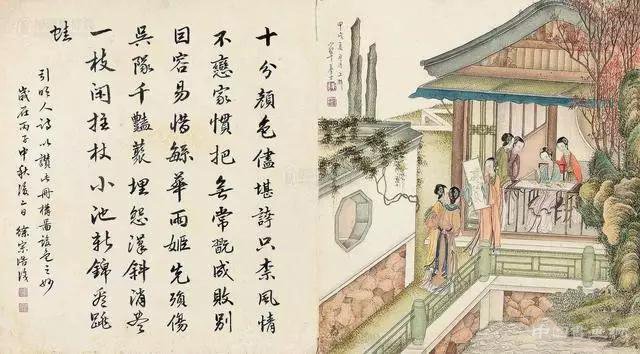 十分顏色儘堪誇只柰風情
不戀家慣把無常翫成敗別
因容易惜緐華兩姬先殞傷
吳隊千豔叢埋怨漢斜消
一枝閑拄杖小池新錦看跳
蛙
引明人詩以讚此冊構圖設色之妙
歲在丙子中秋後二日徐宗浩識
甲戌夏